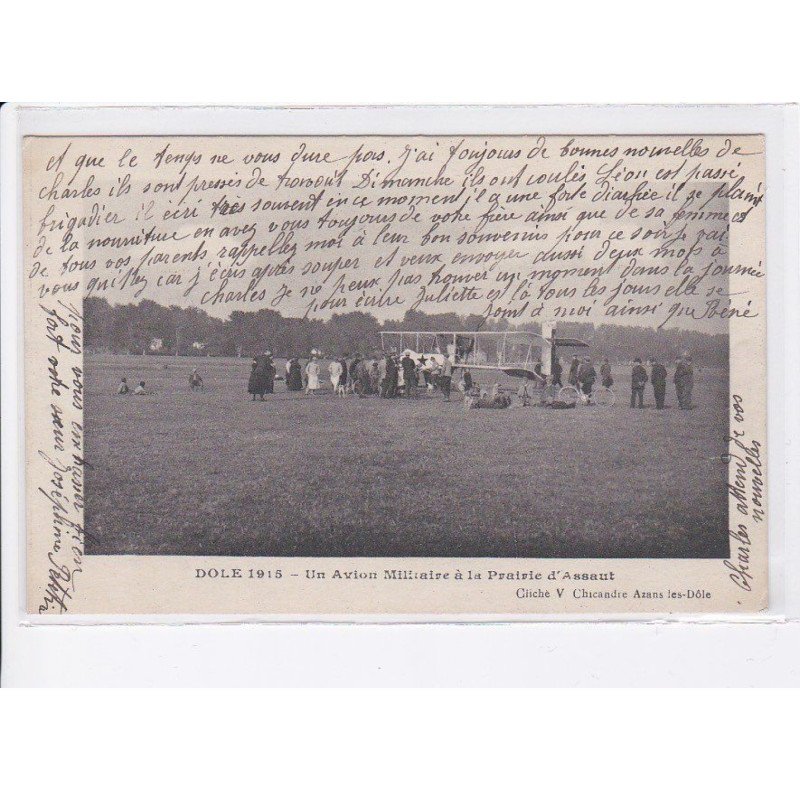 et que le temps ne vous dure pas. J'ai toujours de bonnes nouvelles de
charles ils sont pressés de travail Dimanche ils ont coulés Léon est passé
brigadier il écri tres souvent en ce moment il a une forte diarhée il se plaint
de la nourriture en avez vous toujours de votre frère ainsi que de sa femme et
de tous vos parents rappellez moi à leur bon souvenir pour ce soir je vai
vous quittez car j'écris après souper et veux envoyer aussi deux mots à
charles Je ne peux pas trouver un moment dans la journée
pour écrire Juliette est là tous les jours elle se
joint à moi ainsi que Réné
pour vous embrasser bien
fort votre sœur Joséphine
Charles attend de vos
nouvelles
DOLE 1915 – Un Avion Militaire à la Prairie d'Assaut
Cliché V Chicandre Azans les-Dôle